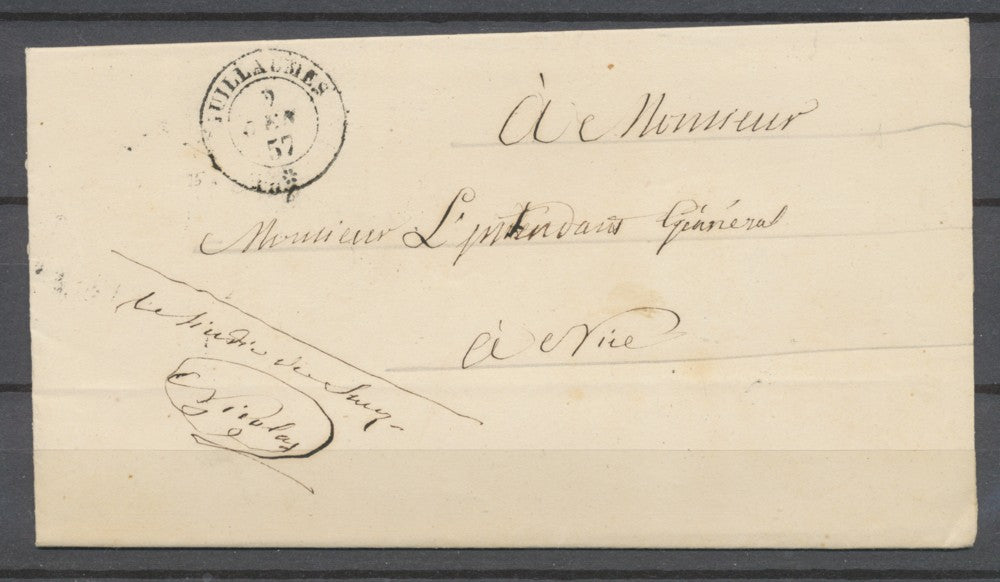 GUILLAUMES
9
57
à Monsieur
Monsieur L'intendant Général
à Nice
Le sindic de
Nicolas